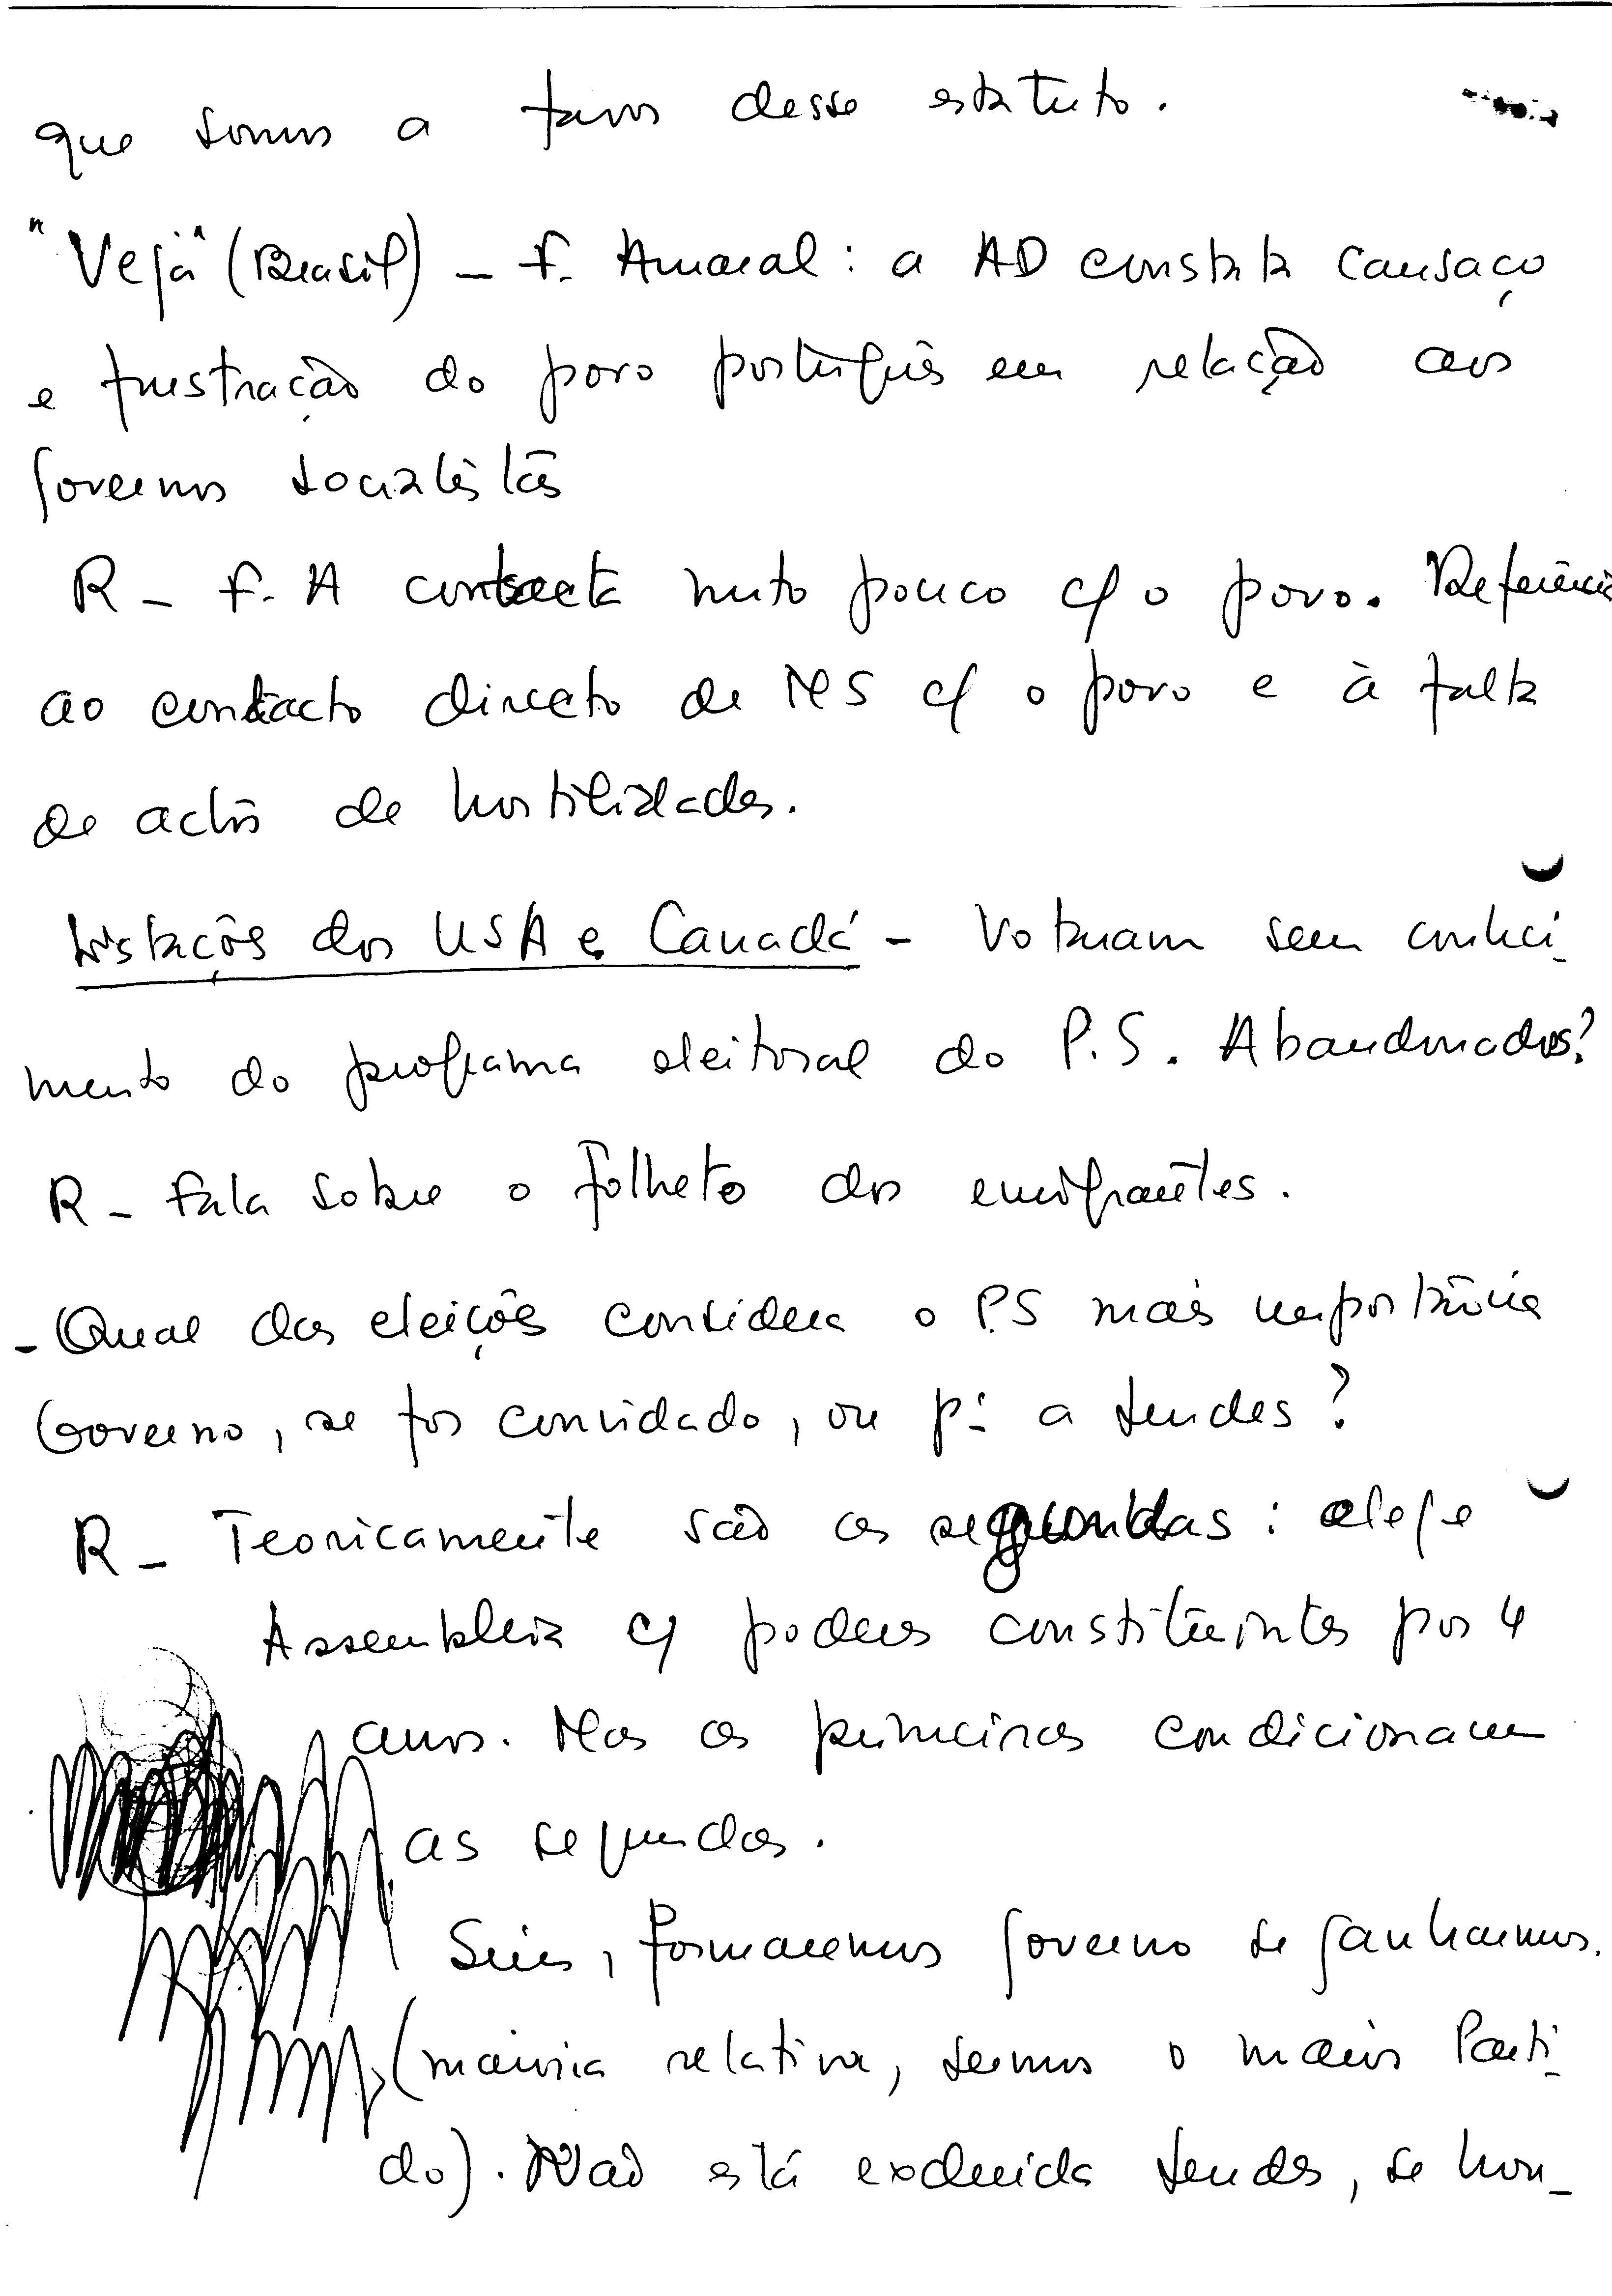 que somos a favor desse estatuto.
"Veja" (Brasil) - F. Amaral: a AD constata cansaço
e frustração do povo português em relação aos
governos socialistas
R - F. A contacta muito pouco c/ o povo. Referência
ao contacto directo de MS c/ o povo e à falta
de actos de hostilidades.
dos USA e Canadá - Votaram sem conheci-
mento do programa eleitoral do P.S. Abandonados?
R - Fala sobre o folheto dos emigrantes.
- Qual das eleições considera o P.S mais importância
Governo, se for convidado, ou p: a
R - Teoricamente são as segundas: elege
Assembleia c/ poderes constituintes por 4
anos. Mas as primeiras condicionam
as segundas.
Sim, formaremos governo se ganharmos.
(maioria relativa, sermos o maior Parti-
do). Não está excluida se hou-